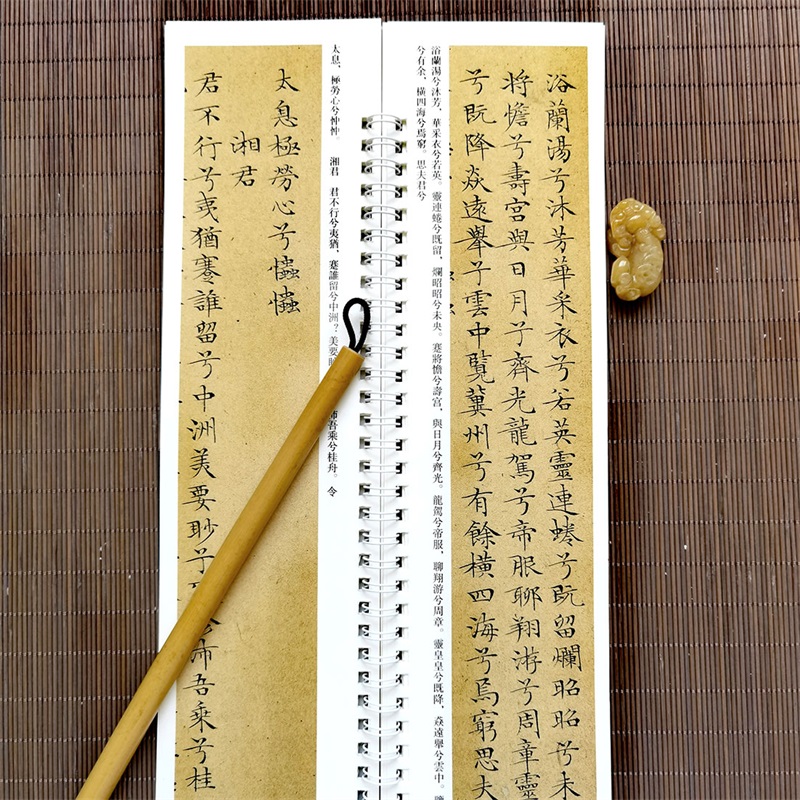 浴蘭湯兮沐芳華采衣兮若英靈連蜷兮既留爛昭昭兮未
将憺兮壽宮與日月兮齊光龍駕兮帝服聊翔游兮周章靈
兮既降焱遠舉兮雲中覽冀州兮有餘橫四海兮焉窮思夫
浴蘭湯兮沐芳，華采衣兮若英。靈連蜷兮既留，爛昭昭兮未央。蹇將憺兮壽宮，與日月兮齊光。龍駕兮帝服，聊翔游兮周章。靈皇皇兮既降，猋遠舉兮雲中。
兮有余，橫四海兮焉窮。思夫君兮
太息，極勞心兮忡忡。 湘君 君不行兮夷猶，蹇誰留兮中洲？美要 沛吾乘兮桂舟。令
太息極勞心兮𢥞𢥞
湘君
君不行兮夷猶蹇誰留兮中洲美要眇兮 沛吾乘兮桂